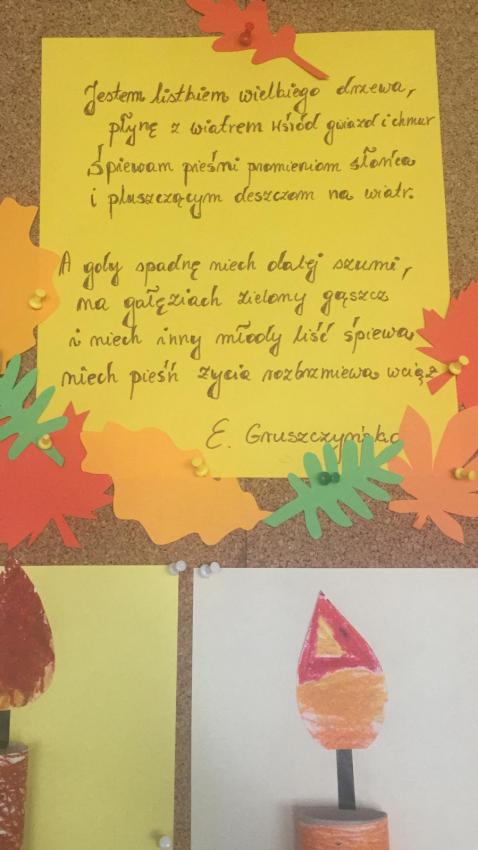 Jestem listkiem wielkiego drzewa,
płynę z wiatrem wśród gwiazd i chmur
Śpiewam pieśni promieniom słońca
i pluszczącym deszczom na wiatr.
A gdy spadnę niech dalej szumi,
na gałęziach zielony gąszcz
i niech inny młody liść śpiewa
niech pieśń życia rozbrzmiewa wciąż
E. Gruszczyńska